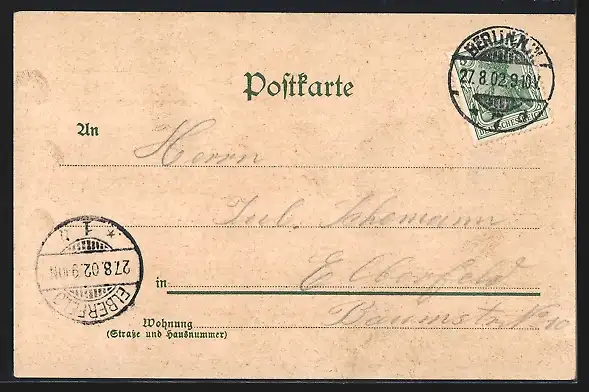 Postkarte
BERLIN N.W
27.8.02.9-10V.
An Herrn
Jul.
ELBERFELD
1
27.8.02.9-10N
in Elberfeld
Wohnung Baumstr. No 10
(Straße und Hausnummer)